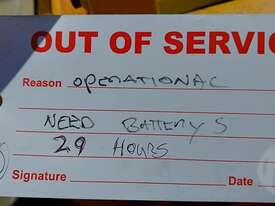 OUT OF SERVIC
Reason OPERATIONAL
NEED BATTERYS
29 HOURS
Signature Date